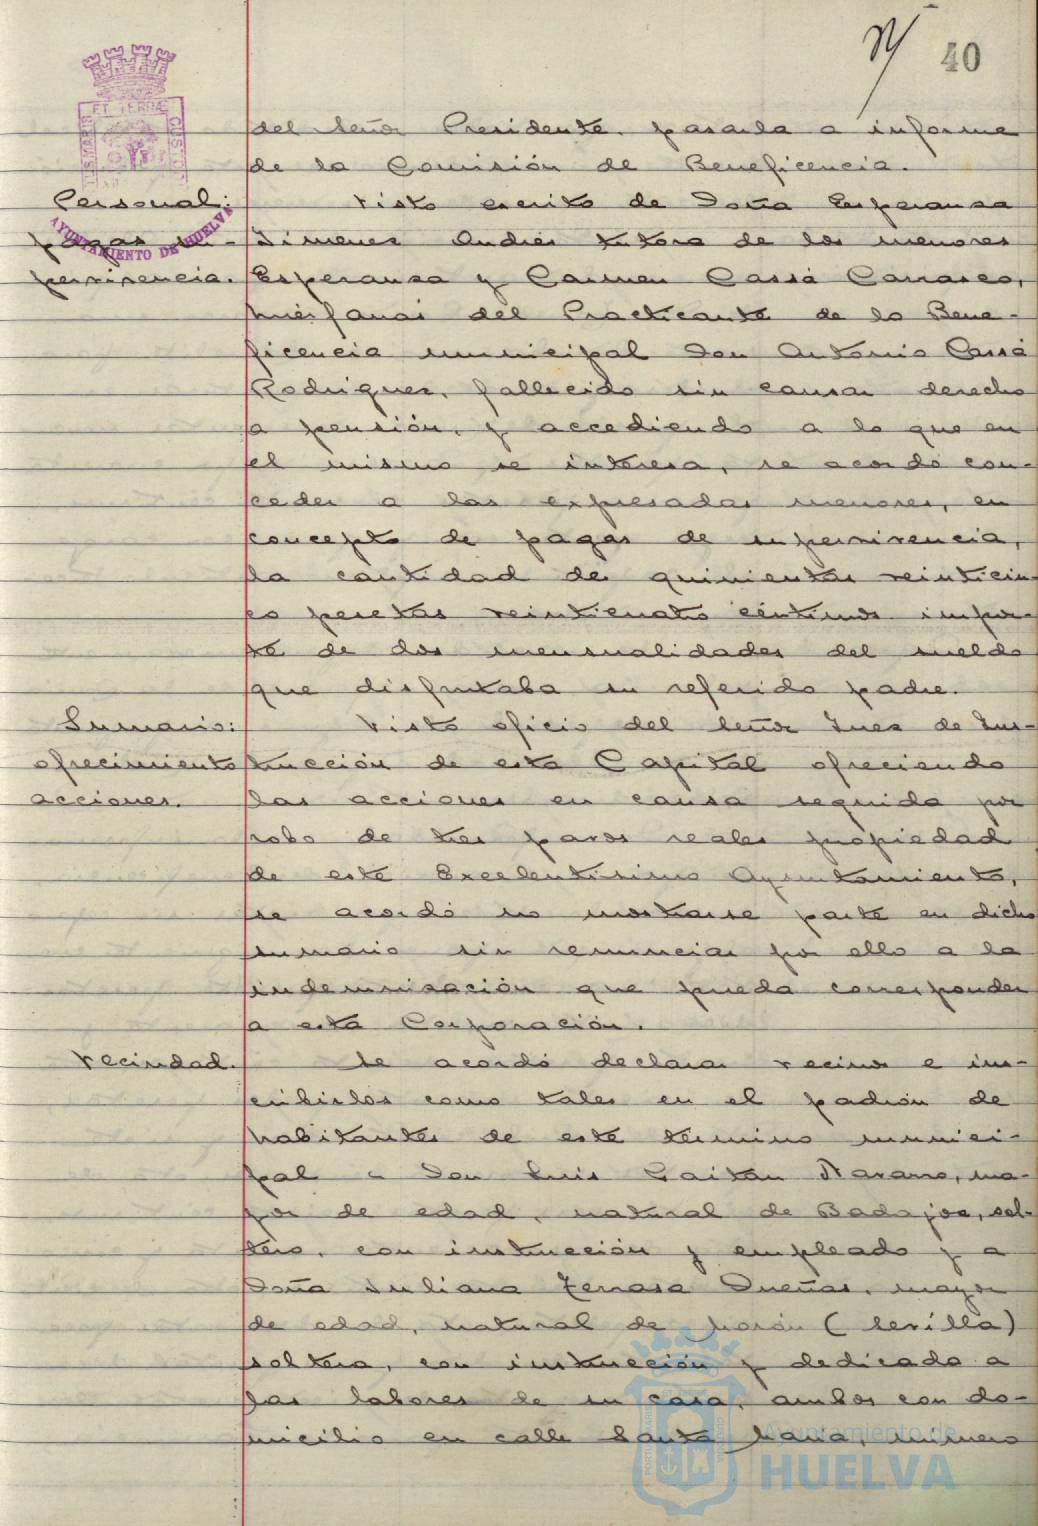 40
del Señor Presidente, pasarla a informe
de la Comisión de Beneficencia.
Personal:
pagas su-
pervivencia.
Visto escrito de Doña Esperanza
Jimenez Andrés tutora de las menores
Esperanza y Carmen Cassá Carrasco,
huérfanas del Practicante de la Bene-
ficencia municipal Don Antonio Cassá
Rodriguez, fallecido sin causar derecho
a pensión, y accediendo a lo que en
el mismo se interesa, se acordó con-
ceder a las expresadas menores, en
concepto de pagas de supervivencia,
la cantidad de quinientas veinticin-
co pesetas veinticuatro céntimos impor-
te de dos mensualidades del sueldo
que disfrutaba su referido padre.
Sumario:
ofrecimiento
acciones.
Visto oficio del Señor Juez de Ins-
trucción de esta Capital ofreciendo
las acciones en causa seguida por
robo de tres pavos reales propiedad
de este Excelentísimo Ayuntamiento,
se acordó no mostrarse parte en dicho
sumario sin renunciar por ello a la
indemnización que pueda corresponder
a esta Corporación.
Vecindad.
Se acordó declarar vecinos e ins-
cribirlos como tales en el padrón de
habitantes de este término munici-
pal a Don Luis Gaitan Navarro, ma-
yor de edad, natural de Badajoz, sol-
tero, con instrucción y empleado y a
Doña Juliana Terrasa Dueñas, mayor
de edad, natural de Morón (Sevilla)
soltera, con instrucción y dedicada a
las labores de su casa, ambos con do-
micilio en calle Santa María, número
AYUNTAMIENTO DE HUELVA
Ayuntamiento de
HUELVA